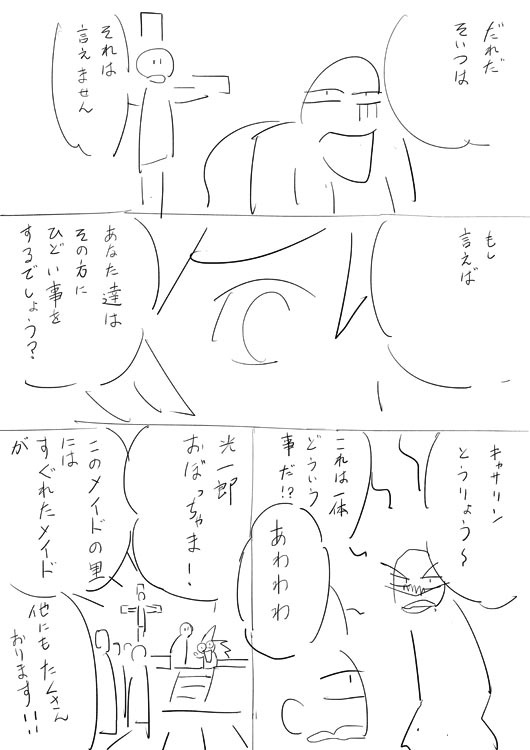 だれだ
そいつは
それは
言えません
もし
言えば
あなた達は
その方に
ひどい事を
するでしょう?
キャサリン
とうりょう〜
これは一体
どういう
事だ!?
あわわわ
光一郎
おぼっちゃま!
このメイドの里
には
すぐれたメイド
が
他にもたくさん
おります!!!